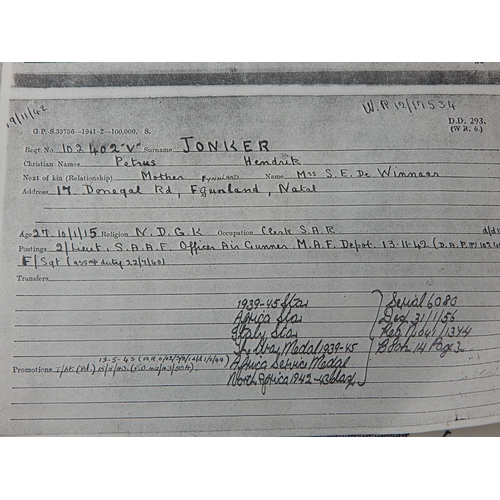 19/11/42
W.R 12/17534
G.P.-S.33756—1941-2—100,000. S.
D.D. 293.
(W.R. 6.)
Regt. No. 102402 "V" Surname JONKER
Christian Names Petrus Hendrik
Next of kin (Relationship) Mother Name Mrs S.E. De Winnaar
Address 17. Donegal Rd, Fynnland, Natal
Age 27. 10/1/15 Religion N.D.G.K Occupation Clerk S.A.R.
Postings 2/Lieut. S.A.A.F. Officer Air Gunner M.A.F. Depot. 13-11-42
F/Sgt (ass<sup>d</sup> duty 22/7/40)
Transfers
1939-45 Star
Africa Star
Italy Star
The War Medal 1939-45
Africa Service Medal
North Africa 1942-43 Clasp
Serial 6080
Des 31/1/56
Reg No. V/1344
Book 14 Page 3
13-5-43
Promotions